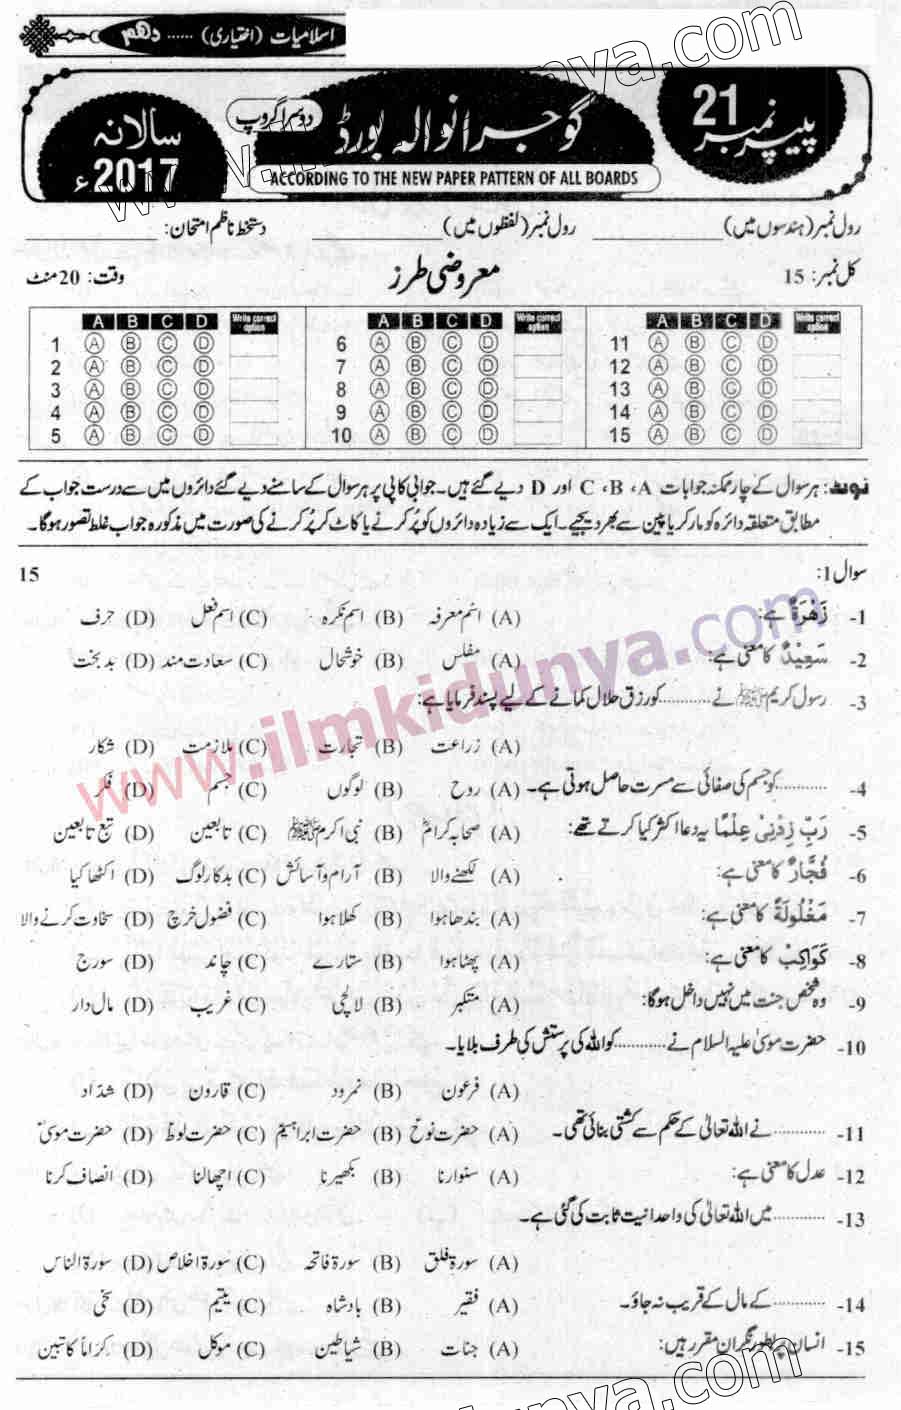 اسلامیات (اختیاری) ...... دھم
پیپر نمبر 21
گوجرانوالہ بورڈ
دوسرا گروپ
سالانہ 2017ء
ACCORDING TO THE NEW PAPER PATTERN OF ALL BOARDS
رول نمبر (ہندسوں میں) ____________ رول نمبر (لفظوں میں) ____________ دستخط ناظم امتحان: ____________
کل نمبر: 15 معروضی طرز وقت: 20 منٹ
A B C D Write correct option A B C D Write correct option A B C D Write correct option
1 A B C D 6 A B C D 11 A B C D
2 A B C D 7 A B C D 12 A B C D
3 A B C D 8 A B C D 13 A B C D
4 A B C D 9 A B C D 14 A B C D
5 A B C D 10 A B C D 15 A B C D
نوٹ: ہر سوال کے چار ممکنہ جوابات A، B، C اور D دیے گئے ہیں۔ جوابی کاپی پر ہر سوال کے سامنے دیے گئے دائروں میں سے درست جواب کے
مطابق متعلقہ دائرہ کو مارکر یا پین سے بھر دیجیے۔ ایک سے زیادہ دائروں کو پُر کرنے یا کاٹ کر پُر کرنے کی صورت میں مذکورہ جواب غلط تصور ہوگا۔
سوال 1: 15
1- زَهْرَةٌ ہے: (A) اسم معرفہ (B) اسم نکرہ (C) اسم فعل (D) حرف
2- سَعِيْدٌ کا معنی ہے: (A) مفلس (B) خوشحال (C) سعادت مند (D) بدبخت
3- رسول کریم ﷺ نے ............ کو رزق حلال کمانے کے لیے پسند فرمایا ہے:
(A) زراعت (B) تجارت (C) ملازمت (D) شکار
4- ............ کو جسم کی صفائی سے مسرت حاصل ہوتی ہے۔ (A) روح (B) لوگوں (C) جسم (D) فکر
5- رَبِّ زِدْنِيْ عِلْمًا یہ دعا اکثر کیا کرتے تھے: (A) صحابہ کرامؓ (B) نبی اکرم ﷺ (C) تابعین (D) تبع تابعین
6- فُجَّارٌ کا معنی ہے: (A) لکھنے والا (B) آرام و آسائش (C) بدکار لوگ (D) اکٹھا کیا
7- مَغْلُولَةً کا معنی ہے: (A) بندھا ہوا (B) کھلا ہوا (C) فضول خرچ (D) سخاوت کرنے والا
8- كَوَاكِبُ کا معنی ہے: (A) پھٹا ہوا (B) ستارے (C) چاند (D) سورج
9- وہ شخص جنت میں نہیں داخل ہوگا: (A) متکبر (B) لالچی (C) غریب (D) مال دار
10- حضرت موسیٰ علیہ السلام نے ............ کو اللہ کی پرستش کی طرف بلایا۔
(A) فرعون (B) نمرود (C) قارون (D) شداد
11- ............ نے اللہ تعالیٰ کے حکم سے کشتی بنائی تھی۔ (A) حضرت نوحؑ (B) حضرت ابراہیمؑ (C) حضرت لوطؑ (D) حضرت موسیٰؑ
12- عدل کا معنی ہے: (A) سنوارنا (B) بکھیرنا (C) اچھالنا (D) انصاف کرنا
13- ............ میں اللہ تعالیٰ کی واحدانیت ثابت کی گئی ہے۔
(A) سورۃ فلق (B) سورۃ فاتحہ (C) سورۃ اخلاص (D) سورۃ الناس
14- ............ کے مال کے قریب نہ جاؤ۔ (A) فقیر (B) بادشاہ (C) یتیم (D) سخی
15- انسان پر بطور نگران مقرر ہیں: (A) جنات (B) شیاطین (C) موکل (D) کراماً کاتبین
www.ilmkidunya.com